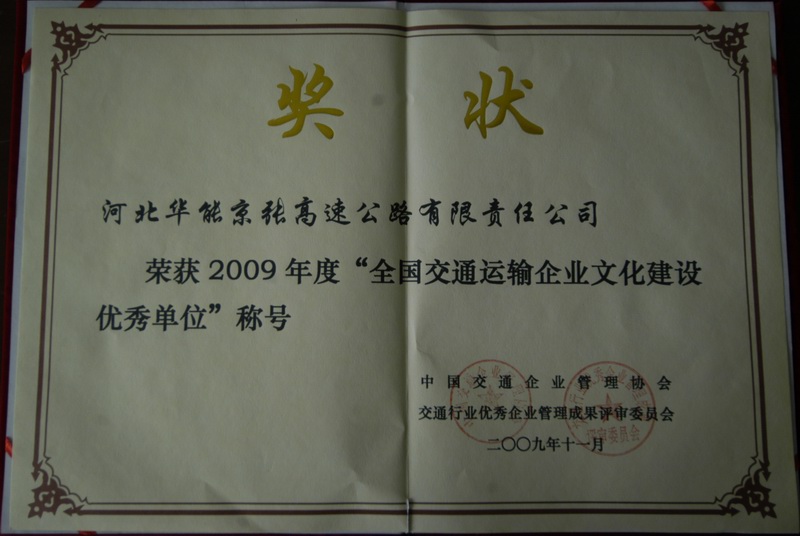 奖状
河北华能京张高速公路有限责任公司
荣获2009年度“全国交通运输企业文化建设
优秀单位”称号
中国交通企业管理协会
交通行业优秀企业管理成果评审委员会
二〇〇九年十一月